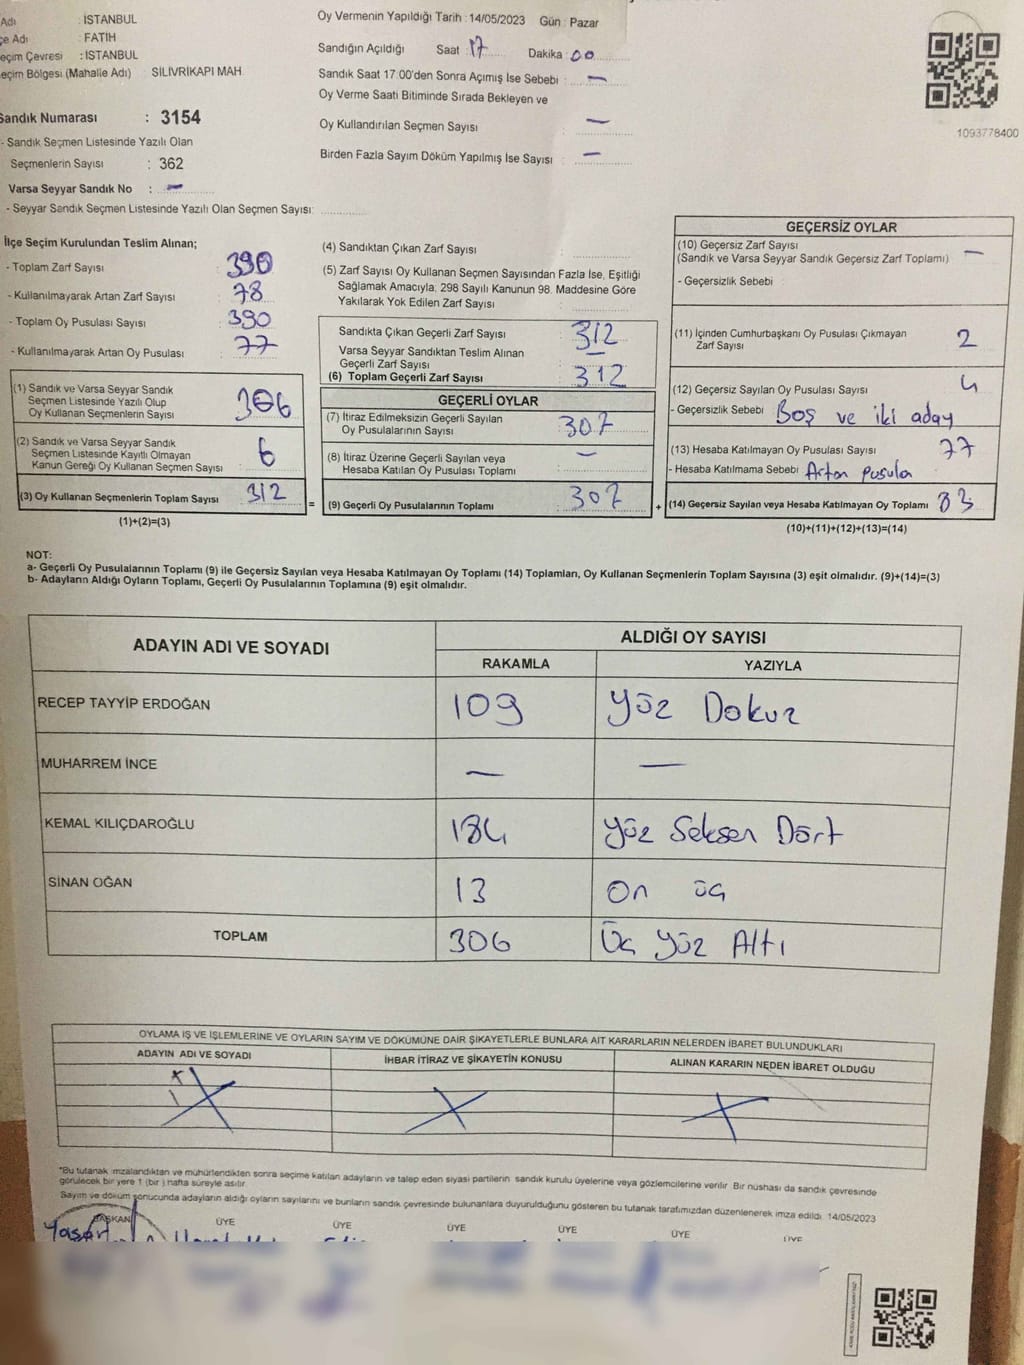 Adı : İSTANBUL
çe Adı : FATİH
eçim Çevresi : İSTANBUL
eçim Bölgesi (Mahalle Adı) SİLİVRİKAPI MAH.
Sandık Numarası : 3154
- Sandık Seçmen Listesinde Yazılı Olan
Seçmenlerin Sayısı : 362
Varsa Seyyar Sandık No : —
- Seyyar Sandık Seçmen Listesinde Yazılı Olan Seçmen Sayısı:
Oy Vermenin Yapıldığı Tarih : 14/05/2023 Gün : Pazar
Sandığın Açıldığı Saat : 17 Dakika : 00
Sandık Saat 17:00'den Sonra Açımış İse Sebebi : —
Oy Verme Saati Bitiminde Sırada Bekleyen ve
Oy Kullandırılan Seçmen Sayısı : —
Birden Fazla Sayım Döküm Yapılmış İse Sayısı : —
1093778400
İlçe Seçim Kurulundan Teslim Alınan;
- Toplam Zarf Sayısı : 390
- Kullanılmayarak Artan Zarf Sayısı : 78
- Toplam Oy Pusulası Sayısı : 390
- Kullanılmayarak Artan Oy Pusulası : 77
(1) Sandık ve Varsa Seyyar Sandık
Seçmen Listesinde Yazılı Olup
Oy Kullanan Seçmenlerin Sayısı : 306
(2) Sandık ve Varsa Seyyar Sandık
Seçmen Listesinde Kayıtlı Olmayan
Kanun Gereği Oy Kullanan Seçmen Sayısı : 6
(3) Oy Kullanan Seçmenlerin Toplam Sayısı : 312
(1)+(2)=(3)
=
(4) Sandıktan Çıkan Zarf Sayısı :
(5) Zarf Sayısı Oy Kullanan Seçmen Sayısından Fazla İse, Eşitliği
Sağlamak Amacıyla, 298 Sayılı Kanunun 98. Maddesine Göre
Yakılarak Yok Edilen Zarf Sayısı :
Sandıkta Çıkan Geçerli Zarf Sayısı : 312
Varsa Seyyar Sandıktan Teslim Alınan
Geçerli Zarf Sayısı : —
(6) Toplam Geçerli Zarf Sayısı : 312
GEÇERLİ OYLAR
(7) İtiraz Edilmeksizin Geçerli Sayılan
Oy Pusulalarının Sayısı : 307
(8) İtiraz Üzerine Geçerli Sayılan veya
Hesaba Katılan Oy Pusulası Toplamı : —
(9) Geçerli Oy Pusulalarının Toplamı : 307
+
GEÇERSİZ OYLAR
(10) Geçersiz Zarf Sayısı
(Sandık ve Varsa Seyyar Sandık Geçersiz Zarf Toplamı) —
- Geçersizlik Sebebi :
(11) İçinden Cumhurbaşkanı Oy Pusulası Çıkmayan
Zarf Sayısı : 2
(12) Geçersiz Sayılan Oy Pusulası Sayısı : 4
- Geçersizlik Sebebi : Boş ve iki aday
(13) Hesaba Katılmayan Oy Pusulası Sayısı : 77
- Hesaba Katılmama Sebebi : Artan pusula
(14) Geçersiz Sayılan veya Hesaba Katılmayan Oy Toplamı : 83
(10)+(11)+(12)+(13)=(14)
NOT:
a- Geçerli Oy Pusulalarının Toplamı (9) ile Geçersiz Sayılan veya Hesaba Katılmayan Oy Toplamı (14) Toplamları, Oy Kullanan Seçmenlerin Toplam Sayısına (3) eşit olmalıdır. (9)+(14)=(3)
b- Adayların Aldığı Oyların Toplamı, Geçerli Oy Pusulalarının Toplamına (9) eşit olmalıdır.
ADAYIN ADI VE SOYADI
ALDIĞI OY SAYISI
RAKAMLA YAZIYLA
RECEP TAYYİP ERDOĞAN 109 Yüz Dokuz
MUHARREM İNCE — —
KEMAL KILIÇDAROĞLU 184 Yüz Seksen Dört
SİNAN OĞAN 13 On üç
TOPLAM 306 Üç Yüz Altı
OYLAMA İŞ VE İŞLEMLERİNE VE OYLARIN SAYIM VE DÖKÜMÜNE DAİR ŞİKAYETLERLE BUNLARA AİT KARARLARIN NELERDEN İBARET BULUNDUKLARI
ADAYIN ADI VE SOYADI İHBAR İTİRAZ VE ŞİKAYETİN KONUSU ALINAN KARARIN NEDEN İBARET OLDUĞU
*Bu tutanak imzalandıktan ve mühürlendikten sonra seçime katılan adayların ve talep eden siyasi partilerin sandık kurulu üyelerine veya gözlemcilerine verilir. Bir nüshası da sandık çevresinde
görülecek bir yere 1 (bir ) hafta süreyle asılır.
Sayım ve döküm sonucunda adayların aldığı oyların sayılarını ve bunların sandık çevresinde bulunanlara duyurulduğunu gösteren bu tutanak tarafımızdan düzenlenerek imza edildi. 14/05/2023
BAŞKAN ÜYE ÜYE ÜYE ÜYE ÜYE ÜYE